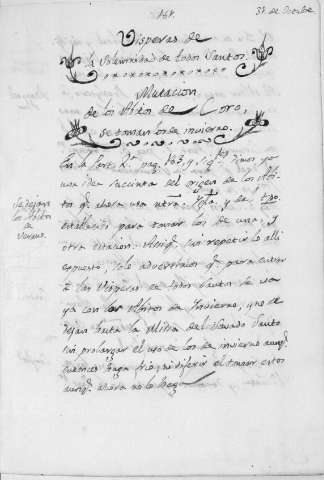 181.
31 de Octubre
Visperas de
la Solemnidad de todos Santos.
Mutacion
de los Abitos de Coro,
se toman los de invierno.
En la Part. 1ª pag. 183, y sigtes dimos ya
una idea sucinta del origen de los Abi-
tos qe. ahora usa ntra. Iglª, y del tpo.
establecido para tomar los de una, y
otra estacion. Asi qe. sin repetir lo alli
expuesto, solo advertimos qe. para entrar
à las Visperas de todos Santos se va
ya con los Abitos de Invierno, que se
dejan hasta la Misa del Sabado Santo
sin prolongar el uso de los de invierno aunqe.
entonces haga frio, ni diferir el tomar estos
aunqe. ahora no lo haga
Se dejan
los Abitos
de
Verano